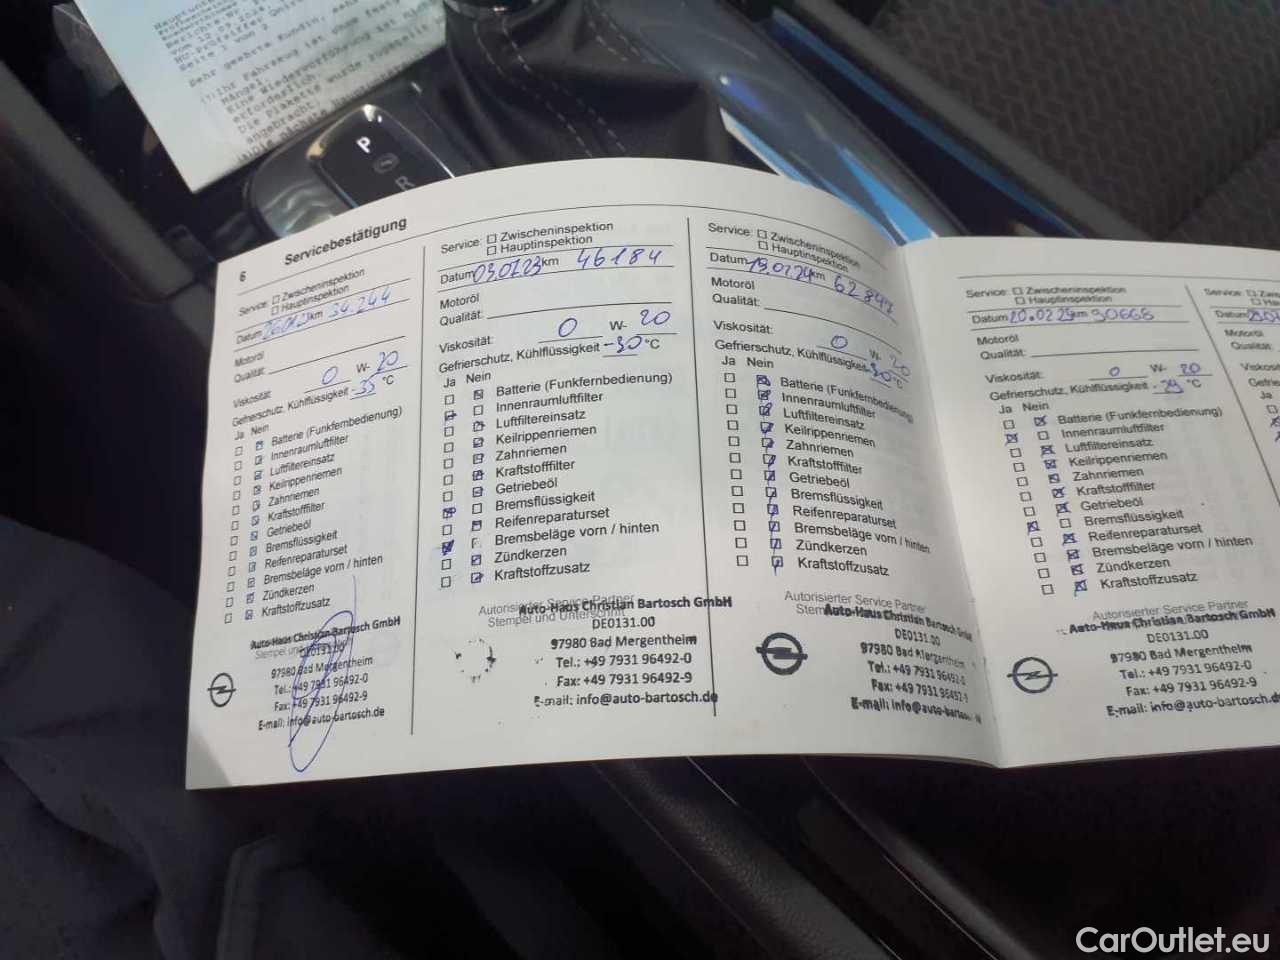 Sehr geehrte Kundin, sehr
Ihr Fahrzeug ist ohne
Mängel.
Eine Wiedervorführung ist
erforderlich
Die Plakette wurde zugeteilt
angebracht
P
R
6 Servicebestätigung
Service: Zwischeninspektion
Hauptinspektion
Datum km 34.244
Motoröl
Qualität:
Viskosität 0 W- 20
Gefrierschutz, Kühlflüssigkeit -35 °C
Ja Nein
Batterie (Funkfernbedienung)
Innenraumluftfilter
Luftfiltereinsatz
Keilrippenriemen
Zahnriemen
Kraftstofffilter
Getriebeöl
Bremsflüssigkeit
Reifenreparaturset
Bremsbeläge vorn / hinten
Zündkerzen
Kraftstoffzusatz
Auto-Haus Christian Bartosch GmbH
DE0131.00
97980 Bad Mergentheim
Tel.: +49 7931 96492-0
Fax: +49 7931 96492-9
E-mail: info@auto-bartosch.de
Service: Zwischeninspektion
Hauptinspektion
Datum 03.07.23 km 46184
Motoröl
Qualität:
Viskosität: 0 W- 20
Gefrierschutz, Kühlflüssigkeit -30 °C
Ja Nein
Batterie (Funkfernbedienung)
Innenraumluftfilter
Luftfiltereinsatz
Keilrippenriemen
Zahnriemen
Kraftstofffilter
Getriebeöl
Bremsflüssigkeit
Reifenreparaturset
Bremsbeläge vorn / hinten
Zündkerzen
Kraftstoffzusatz
Autorisierter Service Partner
Stempel und Unterschrift
Auto-Haus Christian Bartosch GmbH
DE0131.00
97980 Bad Mergentheim
Tel.: +49 7931 96492-0
Fax: +49 7931 96492-9
E-mail: info@auto-bartosch.de
Service: Zwischeninspektion
Hauptinspektion
Datum 19.02.24 km 62847
Motoröl
Qualität:
Viskosität: 0 W- 20
Gefrierschutz, Kühlflüssigkeit -30 °C
Ja Nein
Batterie (Funkfernbedienung)
Innenraumluftfilter
Luftfiltereinsatz
Keilrippenriemen
Zahnriemen
Kraftstofffilter
Getriebeöl
Bremsflüssigkeit
Reifenreparaturset
Bremsbeläge vorn / hinten
Zündkerzen
Kraftstoffzusatz
Autorisierter Service Partner
Auto-Haus Christian Bartosch GmbH
DE0131.00
97980 Bad Mergentheim
Tel.: +49 7931 96492-0
Fax: +49 7931 96492-9
E-mail: info@auto-bartosch
Service: Zwischeninspektion
Hauptinspektion
Datum 20.02.25 km 90668
Motoröl
Qualität:
Viskosität: 0 W- 20
Gefrierschutz, Kühlflüssigkeit -39 °C
Ja Nein
Batterie (Funkfernbedienung)
Innenraumluftfilter
Luftfiltereinsatz
Keilrippenriemen
Zahnriemen
Kraftstofffilter
Getriebeöl
Bremsflüssigkeit
Reifenreparaturset
Bremsbeläge vorn / hinten
Zündkerzen
Kraftstoffzusatz
Autorisierter Service Partner
Auto-Haus Christian Bartosch GmbH
DE0131.00
97980 Bad Mergentheim
Tel.: +49 7931 96492-0
Fax: +49 7931 96492-9
E-mail: info@auto-bartosch.d
Service:
Datum
Motoröl
Qualität:
Ja
CarOutlet.eu